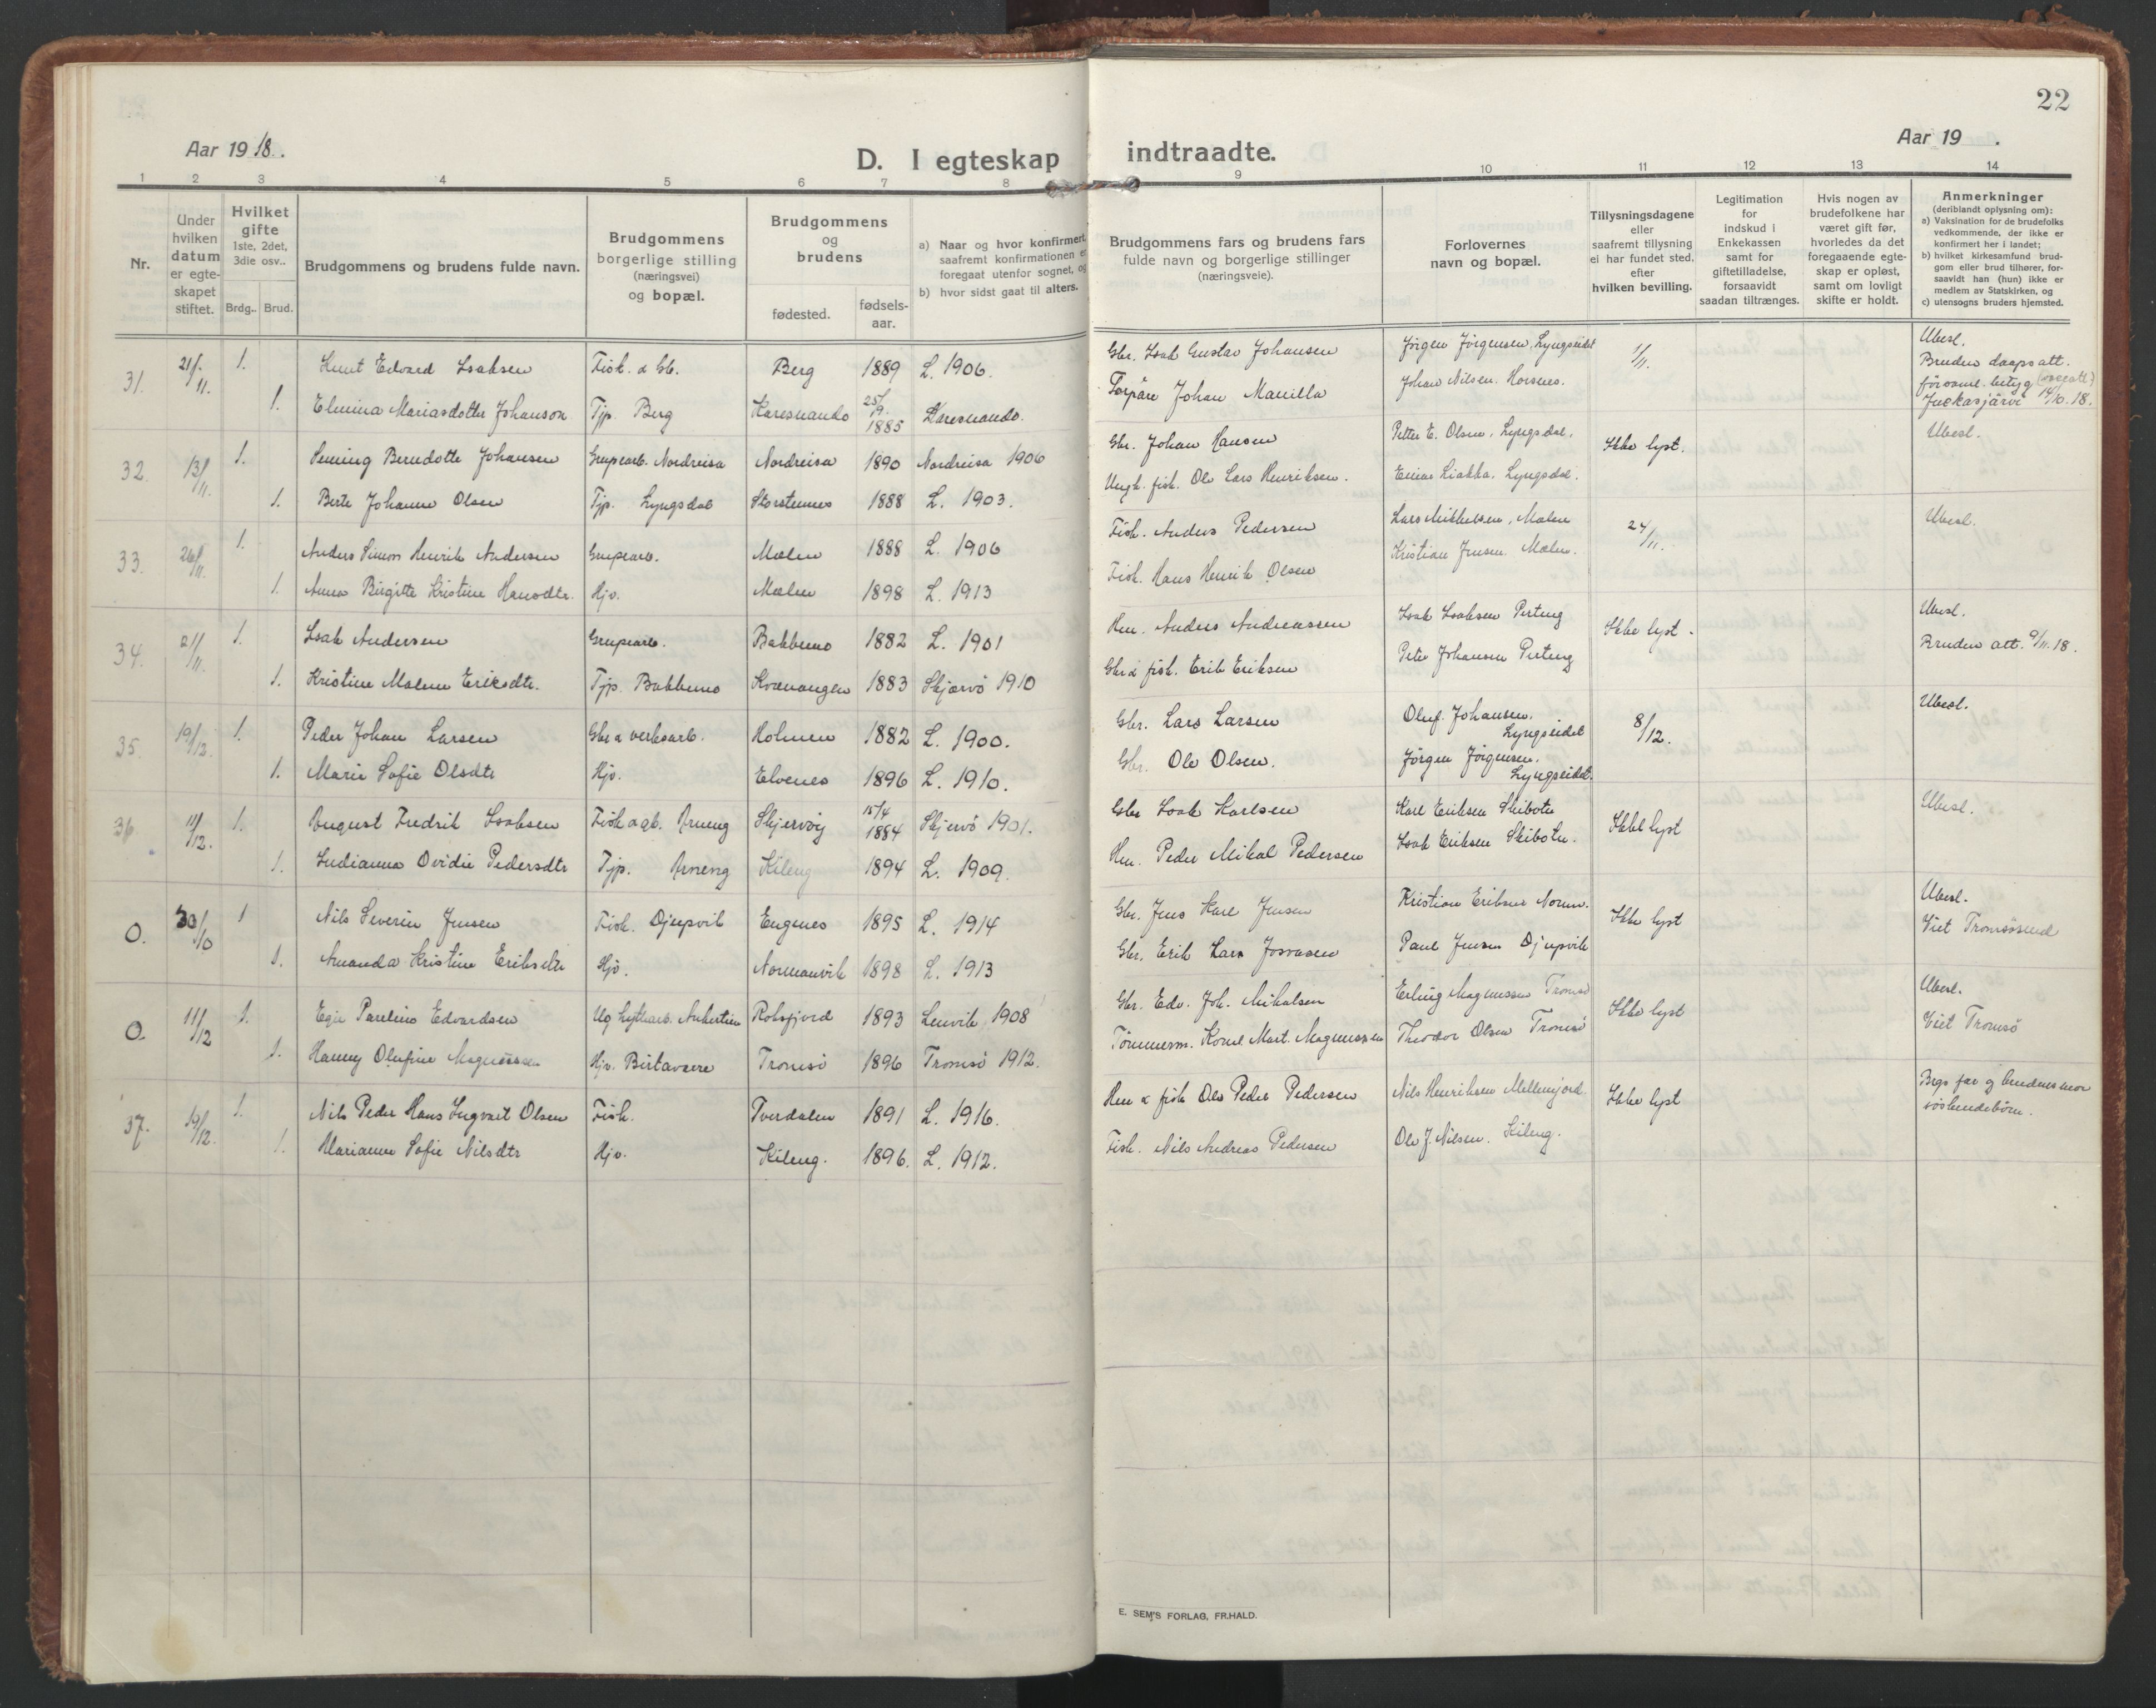 22
Aar 1918.
D. I egteskap indtraadte.
Aar 19 .
1 2 3 4 5 6 7 8 9 10 11 12 13 14
Nr.
Under hvilken datum er egte-skapet stiftet.
Hvilket gifte 1ste, 2det, 3die osv..
Brdg.. Brud.
Brudgommens og brudens fulde navn.
Brudgommens borgerlige stilling (næringsvei) og bopæl.
Brudgommens og brudens
fødested.
fødsels-aar.
a) Naar og hvor konfirmert, saafremt konfirmationen er foregaat utenfor sognet, og
b) hvor sidst gaat til alters.
Brudgommens fars og brudens fars fulde navn og borgerlige stillinger (næringsveie).
Forlovernes navn og bopæl.
Tillysningsdagene eller saafremt tillysning ei har fundet sted, efter hvilken bevilling.
Legitimation for indskud i Enkekassen samt for giftetilladelse, forsaavidt saadan tiltrænges.
Hvis nogen av brudefolkene har været gift før, hvorledes da det foregaaende egte-skap er opløst, samt om lovligt skifte er holdt.
Anmerkninger (deriblandt oplysning om):
a) Vaksination for de brudefolks vedkommende, der ikke er konfirmert her i landet;
b) hvilket kirkesamfund brud-gom eller brud tilhører, for-saavidt han (hun) ikke er medlem av Statskirken, og
c) utensogns bruders hjemsted.
31. 21/11. 1. Knut Edvard Isaksen Fisk. & Gb. Berg 1889 L. 1906. Gbr. Isak Gustav Johansen Jörgen Jörgensen, Lyngseidet 1/11. Ubesl.
Bruden daapsatt.
1. Elmina Mariasdotter Johanson Tjp. Berg Karesuando 25/9. 1885 Karesuando. Torpare Johan Manilla Johan Nilsen. Horsnes. församl. betyg
Juckasjärvi 14/10.18.
32. 13/11. 1. Bendotte Johansen Grupearb. Nordreisa Nordreisa 1890 Nordreisa 1906 Gbr. Johan Hansen Petter E. Olsen, Lyngsdal. Ikke lyst. Ubesl.
1. Berte Johanne Olsen Tjp. Lyngsdal Storstennes 1888 L. 1903. Ungk. fisk. Ole Lars Henriksen. Einar Liakka, Lyngsdal.
33. 26/11. 1. Anders Simon Henrik Andersen Grupearb. Mælen 1888 L. 1906 Fisk. Anders Pedersen Lars Mikkelsen, Mælen 24/11. Ubesl.
1. Anna Birgitte Kristine Hansdtr. Hjv. Mælen 1898 L. 1913 Fisk. Hans Henrik Olsen Kristian Jensen Mælen.
34. 21/11. 1. Isak Andersen Grupearb. Bakkemo 1882 L. 1901 Hm. Anders Andreassen Isak Isaksen Perteng Ikke lyst. Ubesl.
1. Kristine Malene Eriksdtr. Tjp. Bakkemo Kvænangen 1883 Skjærvö 1910 Gbr & fisk. Erik Eriksen Peter Johansen Perteng Bruden att. 9/11.18.
35. 19/12. 1. Peder Johan Larsen Gbr & verksarb. Holmen 1882 L. 1900. Gbr. Lars Larsen Oluf. Johansen. Lyngseidet 8/12. Ubesl.
1. Marie Sofie Olsdtr Hjv. Elvenes 1896 L. 1910. Gbr. Ole Olsen. Jörgen Jörgensen. Lyngseidet.
36 11/12. 1. August Fredrik Isaksen Fisk & gb. Arneng Skjervöy 15/4 1884 Skjervö 1901. Gbr Isak Karlsen Karl Eriksen Skibotn Ikke lyst Ubesl.
1. Indianna Ovidie Pedersdtr Tjp. Arneng Kileng 1894 L. 1909. Hm. Peder Mikal Pedersen Isak Eriksen Skibotn.
0. 30/10 1 Nils Severin Jensen Fisk. Djupvik Engenes 1895 L. 1914 Gbr. Jens Karl Jensen Kristian Eriksen Ikke lyst Ubesl.
Viet Tromsösund
1. Amanda Kristine Eriksdtr Hjv. Normanvik 1898 L. 1913 Gbr. Erik Lars Josvasen Paul Jensen Djupvik
0. 11/12 1. Paulius Edvardsen Rossfjord 1893 Lenvik 1908 Gbr. Edv. Joh. Mikalsen Erling Magnussen Tromsö Ikke lyst Ubesl.
Viet Tromsö
1. Hanny Olufine Magnussen Hjv. Birtavarre Tromsö 1896 Tromsö 1912. Tömmerm. Konel Mart. Magnussen Theodor Olsen Tromsö
37. 19/12. 1. Nils Peder Hans Ingvart Olsen Fisk. Tverdalen 1891 L. 1916. Hm & fisk Ole Peder Pedersen Nils Henriksen Ikke lyst Brgs far og brudens mor
söskendebörn.
1. Marianne Sofie Nilsdtr Hjv. Kileng. 1896. L. 1912. Fisk. Nils Andreas Pedersen Ole J. Nilsen. Kileng.
E. SEM'S FORLAG, FR.HALD.